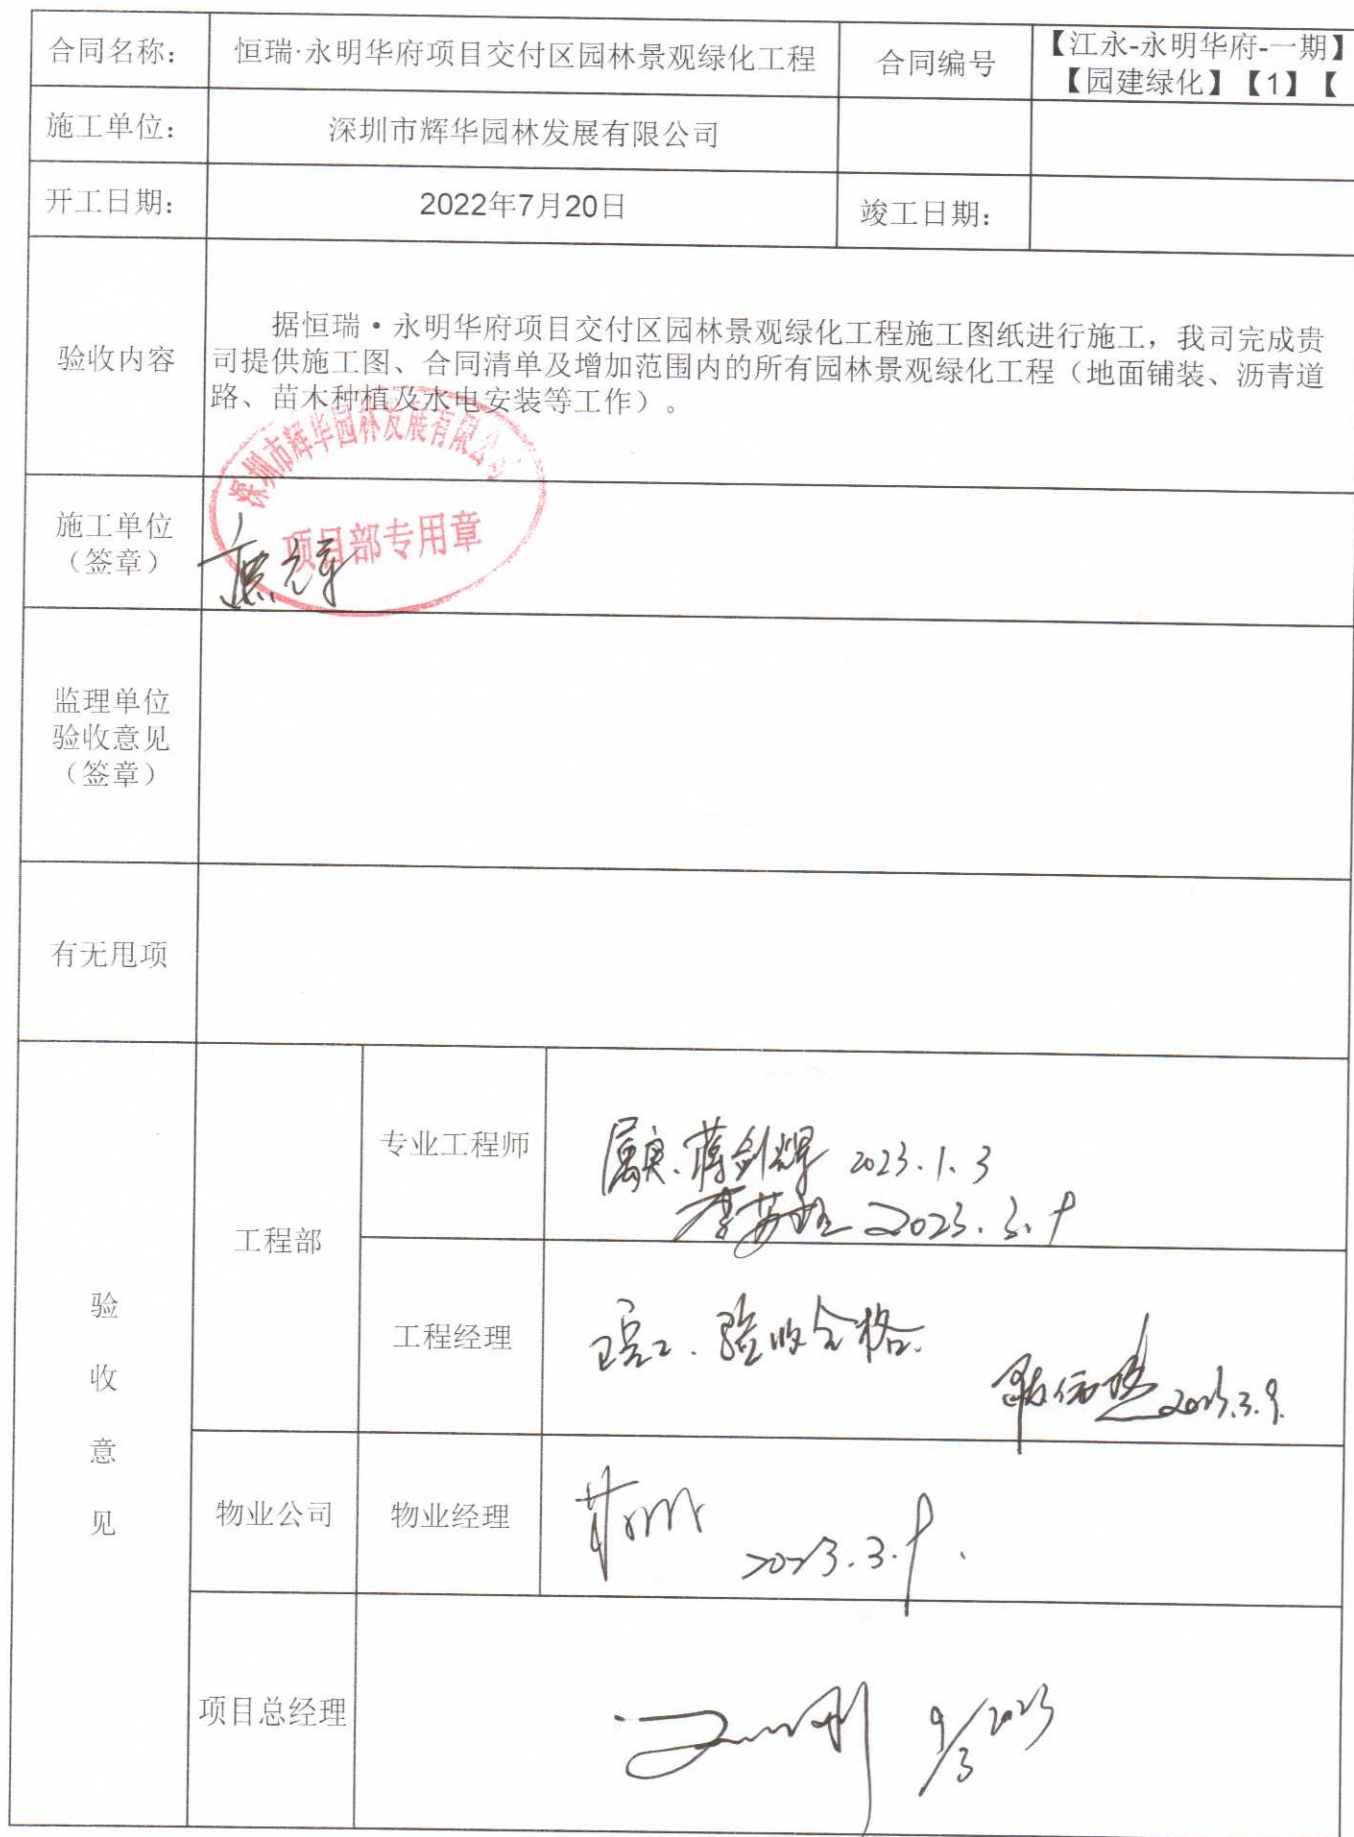 合同名称：
恒瑞·永明华府项目交付区园林景观绿化工程
合同编号
【江永-永明华府-一期】
【园建绿化】【1】【
施工单位：
深圳市辉华园林发展有限公司
开工日期：
2022年7月20日
竣工日期：
验收内容
据恒瑞·永明华府项目交付区园林景观绿化工程施工图纸进行施工，我司完成贵
司提供施工图、合同清单及增加范围内的所有园林景观绿化工程（地面铺装、沥青道
路、苗木种植及水电安装等工作）。
深圳市辉华园林发展有限公司
项目部专用章
施工单位
（签章）
监理单位
验收意见
（签章）
有无甩项
验
收
意
见
工程部
专业工程师
属实.蒋剑辉 2023.1.3
2023.3.9
工程经理
验收合格.
2023.3.9.
物业公司
物业经理
2023.3.9.
项目总经理
9/3 2023